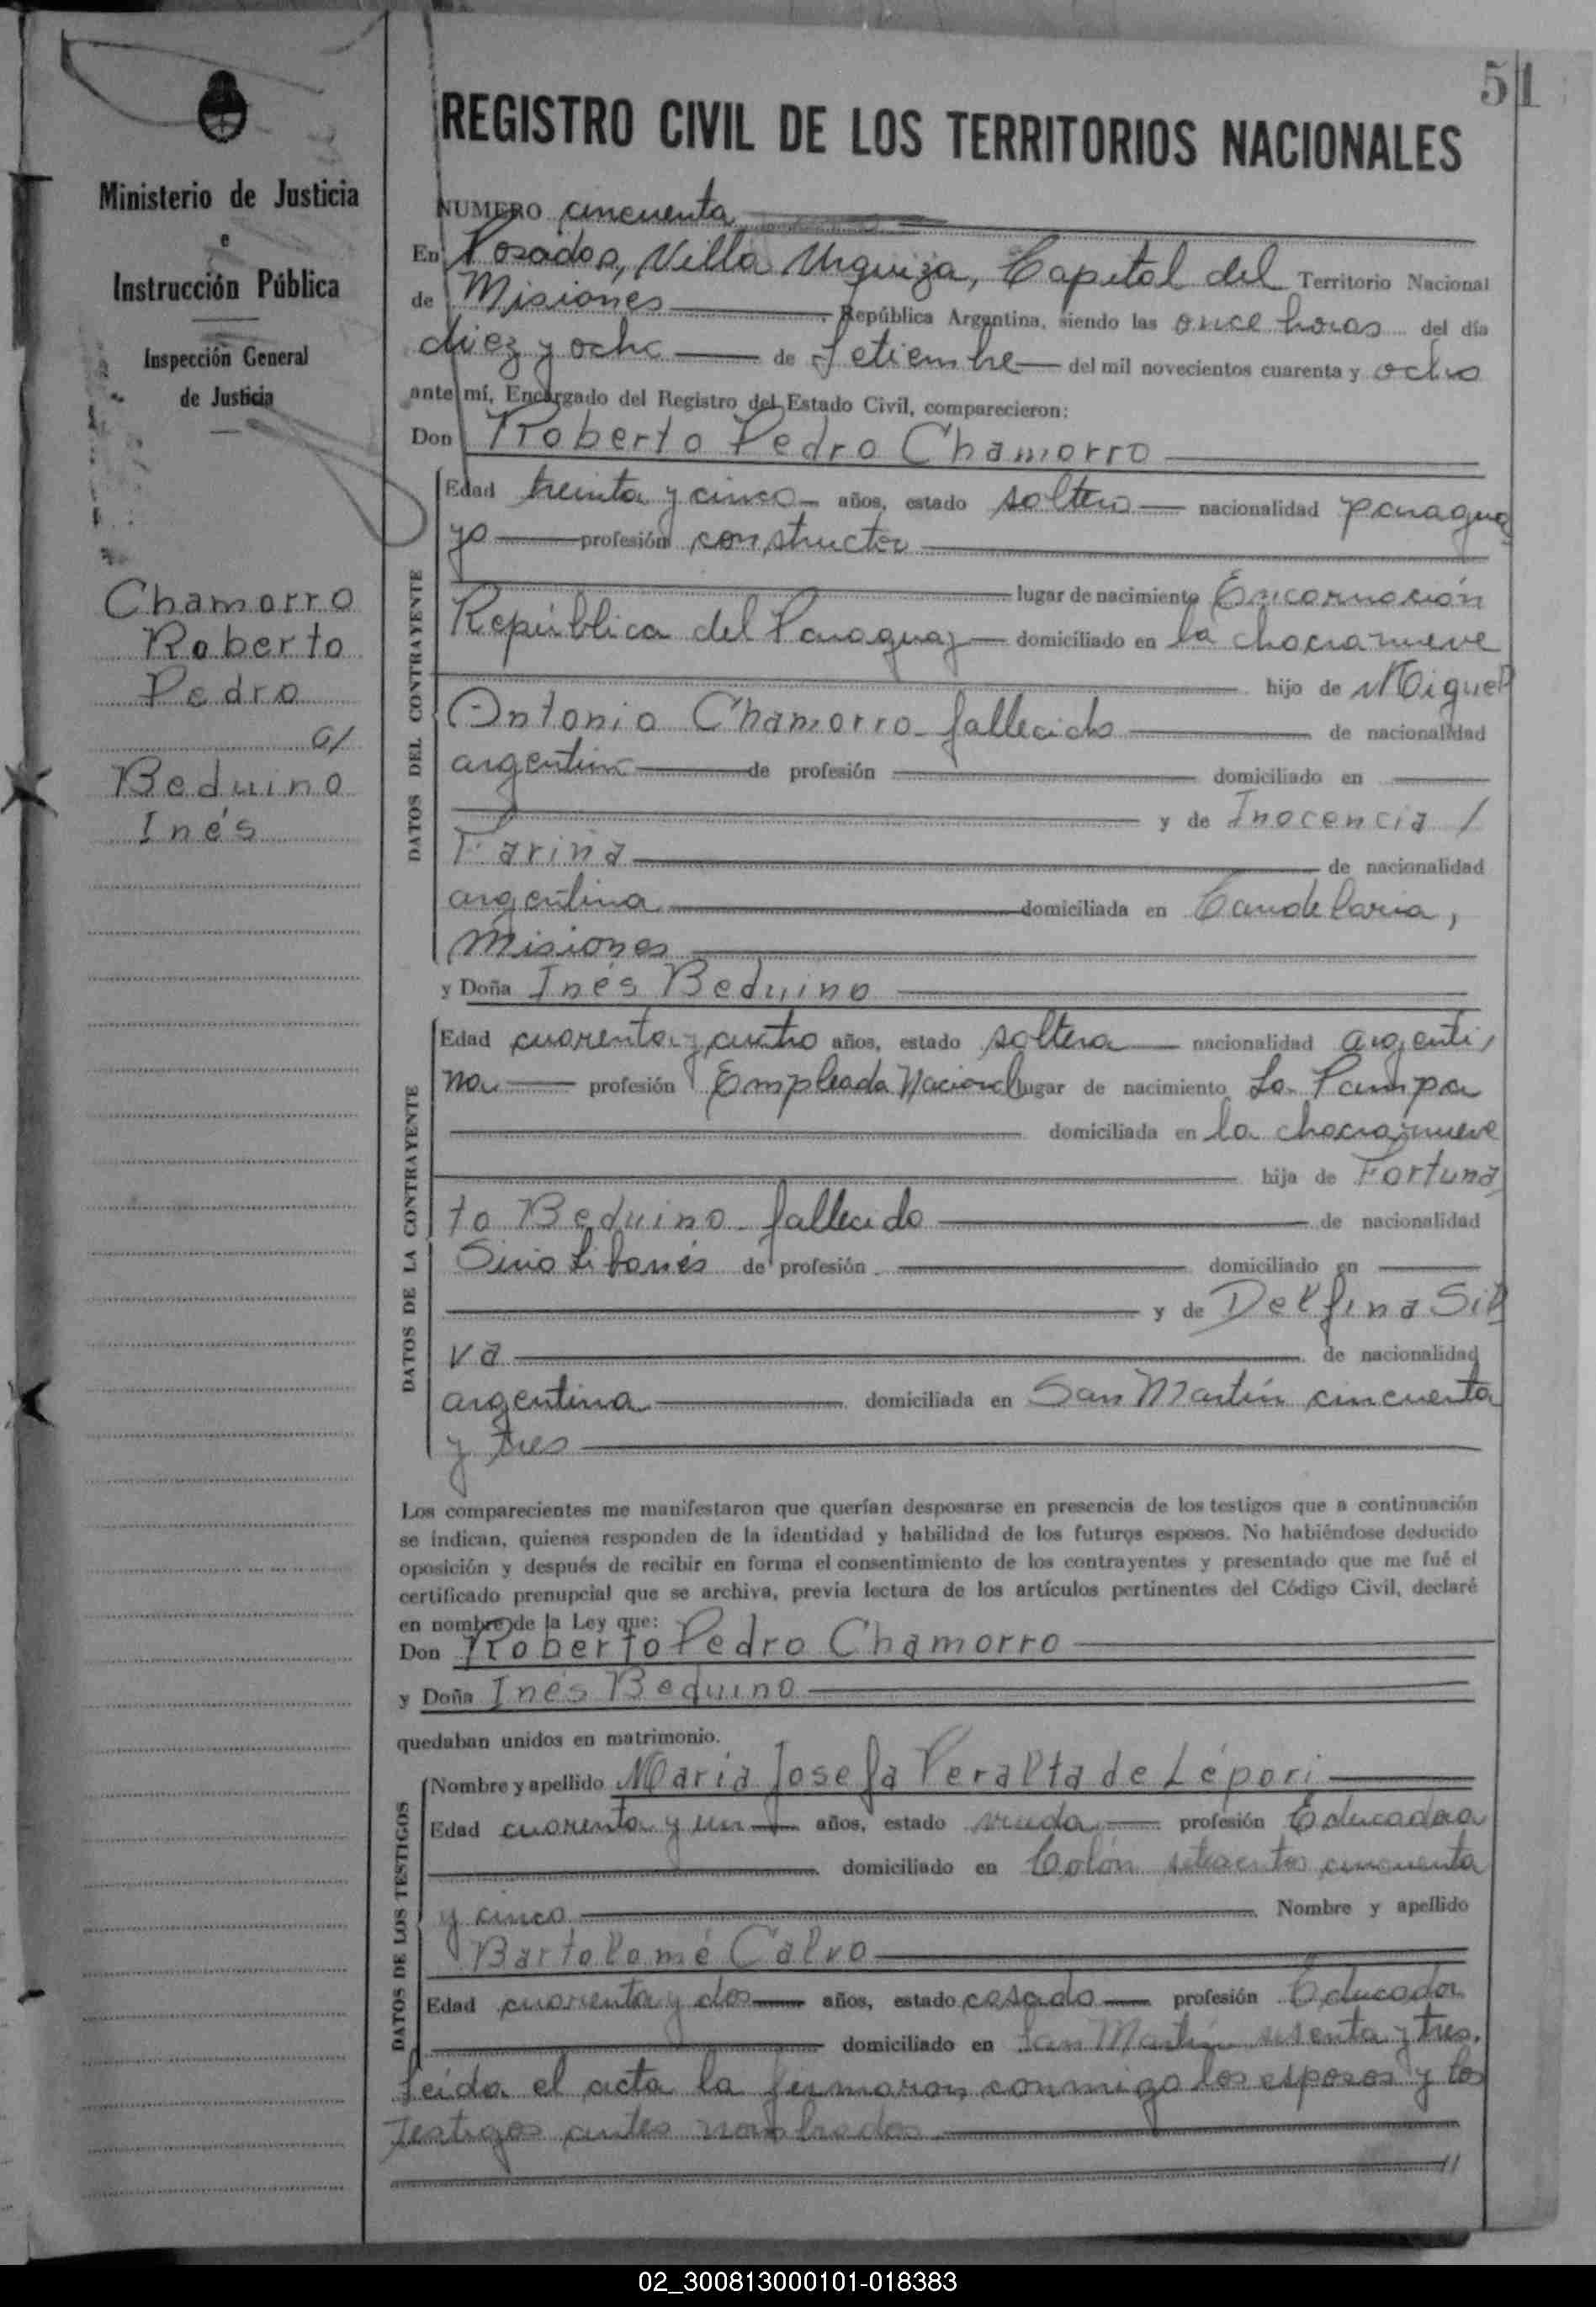 51
Ministerio de Justicia
e
Instrucción Pública
Inspección General
de Justicia
Chamorro
Roberto
Pedro
c/
Beduino
Inés
REGISTRO CIVIL DE LOS TERRITORIOS NACIONALES
NUMERO cincuenta
En Posadas, Villa Urquiza, Capital del Territorio Nacional
de Misiones República Argentina, siendo las once horas del día
diez y ocho de Setiembre del mil novecientos cuarenta y ocho
ante mí, Encargado del Registro del Estado Civil, comparecieron:
Don Roberto Pedro Chamorro
DATOS DEL CONTRAYENTE
Edad treinta y cinco años, estado soltero nacionalidad paragua
yo profesión constructor
lugar de nacimiento Encarnación
República del Paraguay domiciliado en la chacra nueve
hijo de Miguel
Antonio Chamorro fallecido de nacionalidad
argentina de profesión domiciliado en
y de Inocencia /
Fariña de nacionalidad
argentina domiciliada en Candelaria,
Misiones
y Doña Inés Beduino
DATOS DE LA CONTRAYENTE
Edad cuarenta y cuatro años, estado soltera nacionalidad argenti
na profesión Empleada Nacional lugar de nacimiento La Pampa
domiciliada en la chacra nueve
hija de Fortuna
to Beduino fallecido de nacionalidad
Sirio Libanés de profesión domiciliado en
y de Delfina Sil
va de nacionalidad
argentina domiciliada en San Martín cincuenta
y tres
Los comparecientes me manifestaron que querían desposarse en presencia de los testigos que a continuación
se indican, quienes responden de la identidad y habilidad de los futuros esposos. No habiéndose deducido
oposición y después de recibir en forma el consentimiento de los contrayentes y presentado que me fué el
certificado prenupcial que se archiva, previa lectura de los artículos pertinentes del Código Civil, declaré
en nombre de la Ley que:
Don Roberto Pedro Chamorro
y Doña Inés Beduino
quedaban unidos en matrimonio.
DATOS DE LOS TESTIGOS
Nombre y apellido María Josefa Peralta de Lépori
Edad cuarenta y un años, estado viuda profesión Educadora
domiciliado en Colón setecientos cincuenta
y cinco Nombre y apellido
Bartolomé Calvo
Edad cuarenta y dos años, estado casado profesión Educador
domiciliado en San Martín sesenta y tres.
Leída el acta la firmaron conmigo los esposos y los
testigos antes nombrados
//
02_300813000101-018383